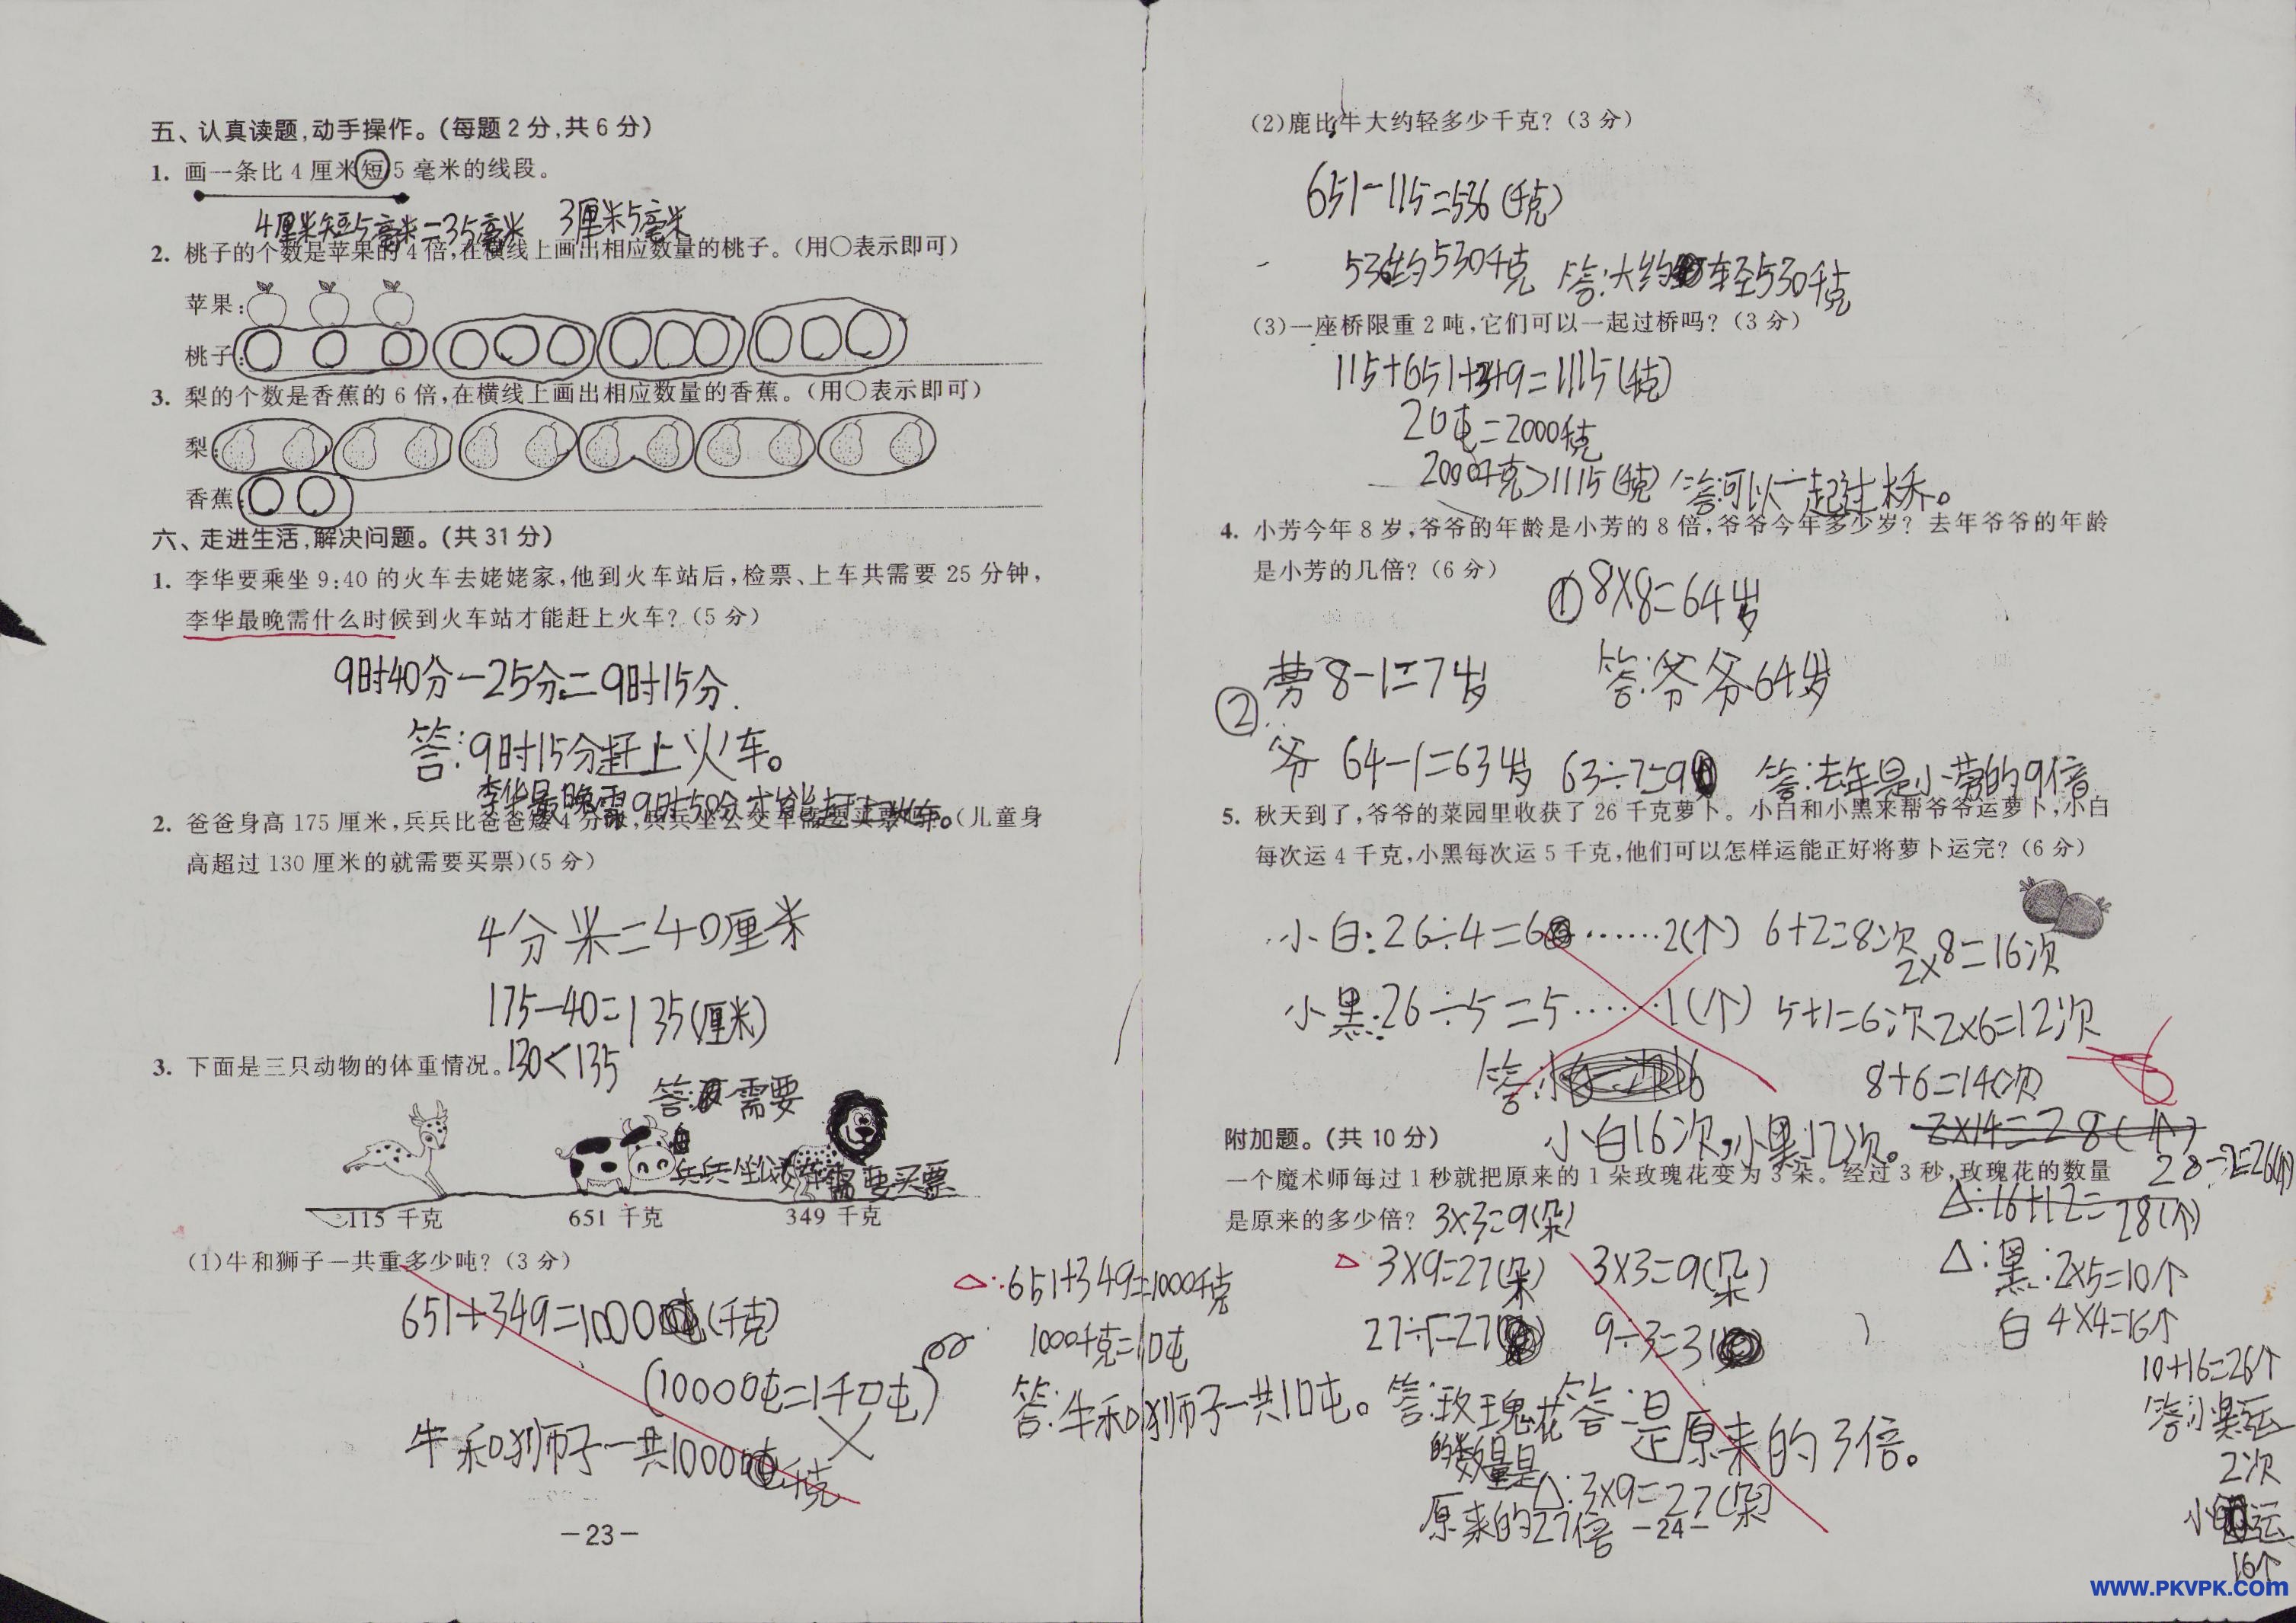 五、认真读题,动手操作。(每题2分,共6分)
1. 画一条比4厘米短5毫米的线段。
4厘米短5毫米=35毫米 3厘米5毫米
2. 桃子的个数是苹果的4倍,在横线上画出相应数量的桃子。(用○表示即可)
苹果:
桃子:
3. 梨的个数是香蕉的6倍,在横线上画出相应数量的香蕉。(用○表示即可)
梨:
香蕉:
六、走进生活,解决问题。(共31分)
1. 李华要乘坐9:40的火车去姥姥家,他到火车站后,检票、上车共需要25分钟,
李华最晚需什么时候到火车站才能赶上火车?(5分)
9时40分-25分=9时15分.
答:9时15分赶上火车。
李华最晚需9时50分才能赶上火车。
2. 爸爸身高175厘米,兵兵比爸爸矮4分米,兵兵坐公交车需要买票吗?(儿童身
高超过130厘米的就需要买票)(5分)
4分米=40厘米
175-40=135(厘米)
130<135
3. 下面是三只动物的体重情况。
答: 需要
兵兵坐公交车需要买票
115千克 651千克 349千克
(1)牛和狮子一共重多少吨?(3分)
651+349=1000(千克)
(10000吨=1千0吨)
牛和狮子一共1000千克
△:651+349=1000千克
1000千克=10吨
答:牛和狮子一共10吨。
-23-
(2)鹿比牛大约轻多少千克?(3分)
651-115=536(千克)
536约530千克 答:大约轻530千克
(3)一座桥限重2吨,它们可以一起过桥吗?(3分)
115+651+349=1115(千克)
20吨=2000千克
2000千克>1115(千克) 答:可以一起过桥。
4. 小芳今年8岁,爷爷的年龄是小芳的8倍,爷爷今年多少岁?去年爷爷的年龄
是小芳的几倍?(6分)
①8×8=64岁
答:爷爷64岁
② 芳8-1=7岁
爷 64-1=63岁 63÷7=9 答:去年是小芳的9倍
5. 秋天到了,爷爷的菜园里收获了26千克萝卜。小白和小黑来帮爷爷运萝卜,小白
每次运4千克,小黑每次运5千克,他们可以怎样运能正好将萝卜运完?(6分)
小白:26÷4=6……2(个) 6+2=8次
2×8=16次
小黑:26÷5=5……1(个) 5+1=6次 2×6=12次
答:小
8+6=14(次)
小白16次,小黑12次。
2×14=28(个)
28-2=26(个)
△:16+12=28(个)
△:黑:2×5=10个
白 4×4=16个
10+16=26个
答:小黑运
2次
小 运
16个
附加题。(共10分)
一个魔术师每过1秒就把原来的1朵玫瑰花变为3朵。经过3秒,玫瑰花的数量
是原来的多少倍? 3×3=9(朵)
△:3×9=27(朵)
27÷1=27
答:玫瑰花
的数量是
原来的27倍
3×3=9(朵)
9÷3=3
答:是原来的3倍。
△:3×9=27(朵)
-24-
www.PKVPK.com